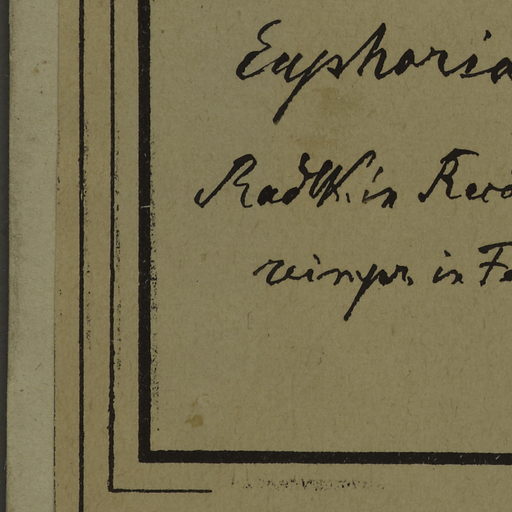 Euphoria
Radlk. in Reco
reimpr. in Fe